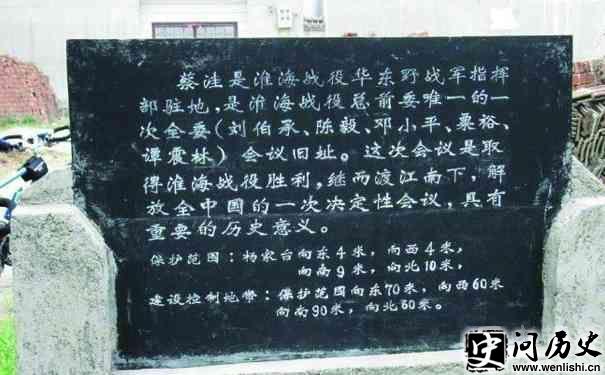 蔡洼是淮海战役华东野战军指挥
部驻地，是淮海战役总前委唯一的一
次全委（刘伯承、陈毅、邓小平、粟裕、
谭震林）会议旧址。这次会议是取
得淮海战役胜利，继而渡江南下，解
放全中国的一次决定性会议，具有
重要的历史意义。
保护范围：杨家台向东4米，向西4米，
向南9米，向北10米，
建设控制地带：保护范围向东70米，向西60米
向南90米，向北60米。
问历史
www.wenlishi.cn